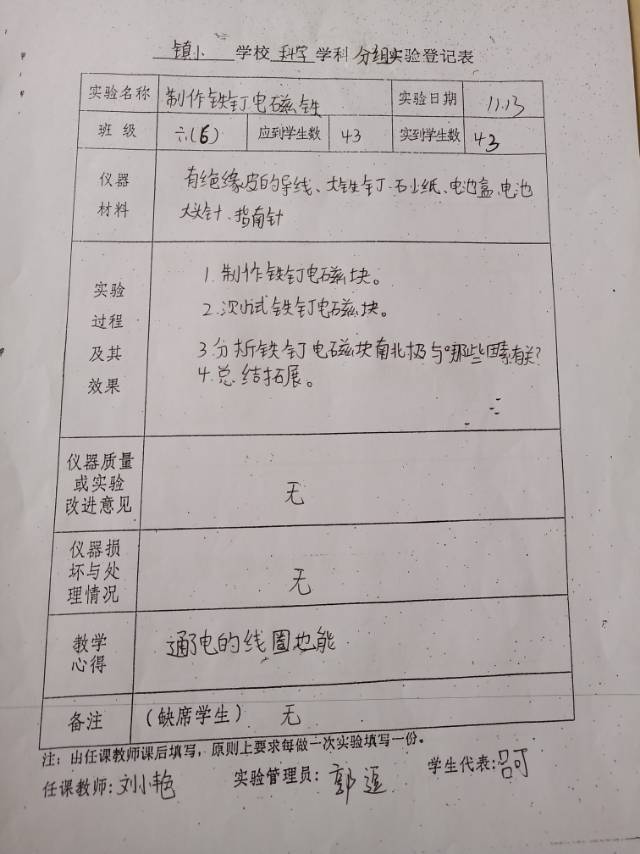 镇小 学校 科学 学科 分组实验登记表
实验名称 制作铁钉电磁铁 实验日期 11.13
班 级 六(6) 应到学生数 43 实到学生数 43
仪器 有绝缘皮的导线、大铁钉、砂纸、电池盒、电池
材料 大头针、指南针
实验 1.制作铁钉电磁块。
过程 2.测试铁钉电磁块。
及其 3.分析铁钉电磁块南北极与哪些因素有关?
效果 4.总结拓展。
仪器质量
或实验
改进意见 无
仪器损
坏与处
理情况 无
教学
心得 通电的线圈也能
备注 (缺席学生) 无
注:由任课教师课后填写,原则上要求每做一次实验填写一份。
任课教师:刘小艳 实验管理员:郭 学生代表: